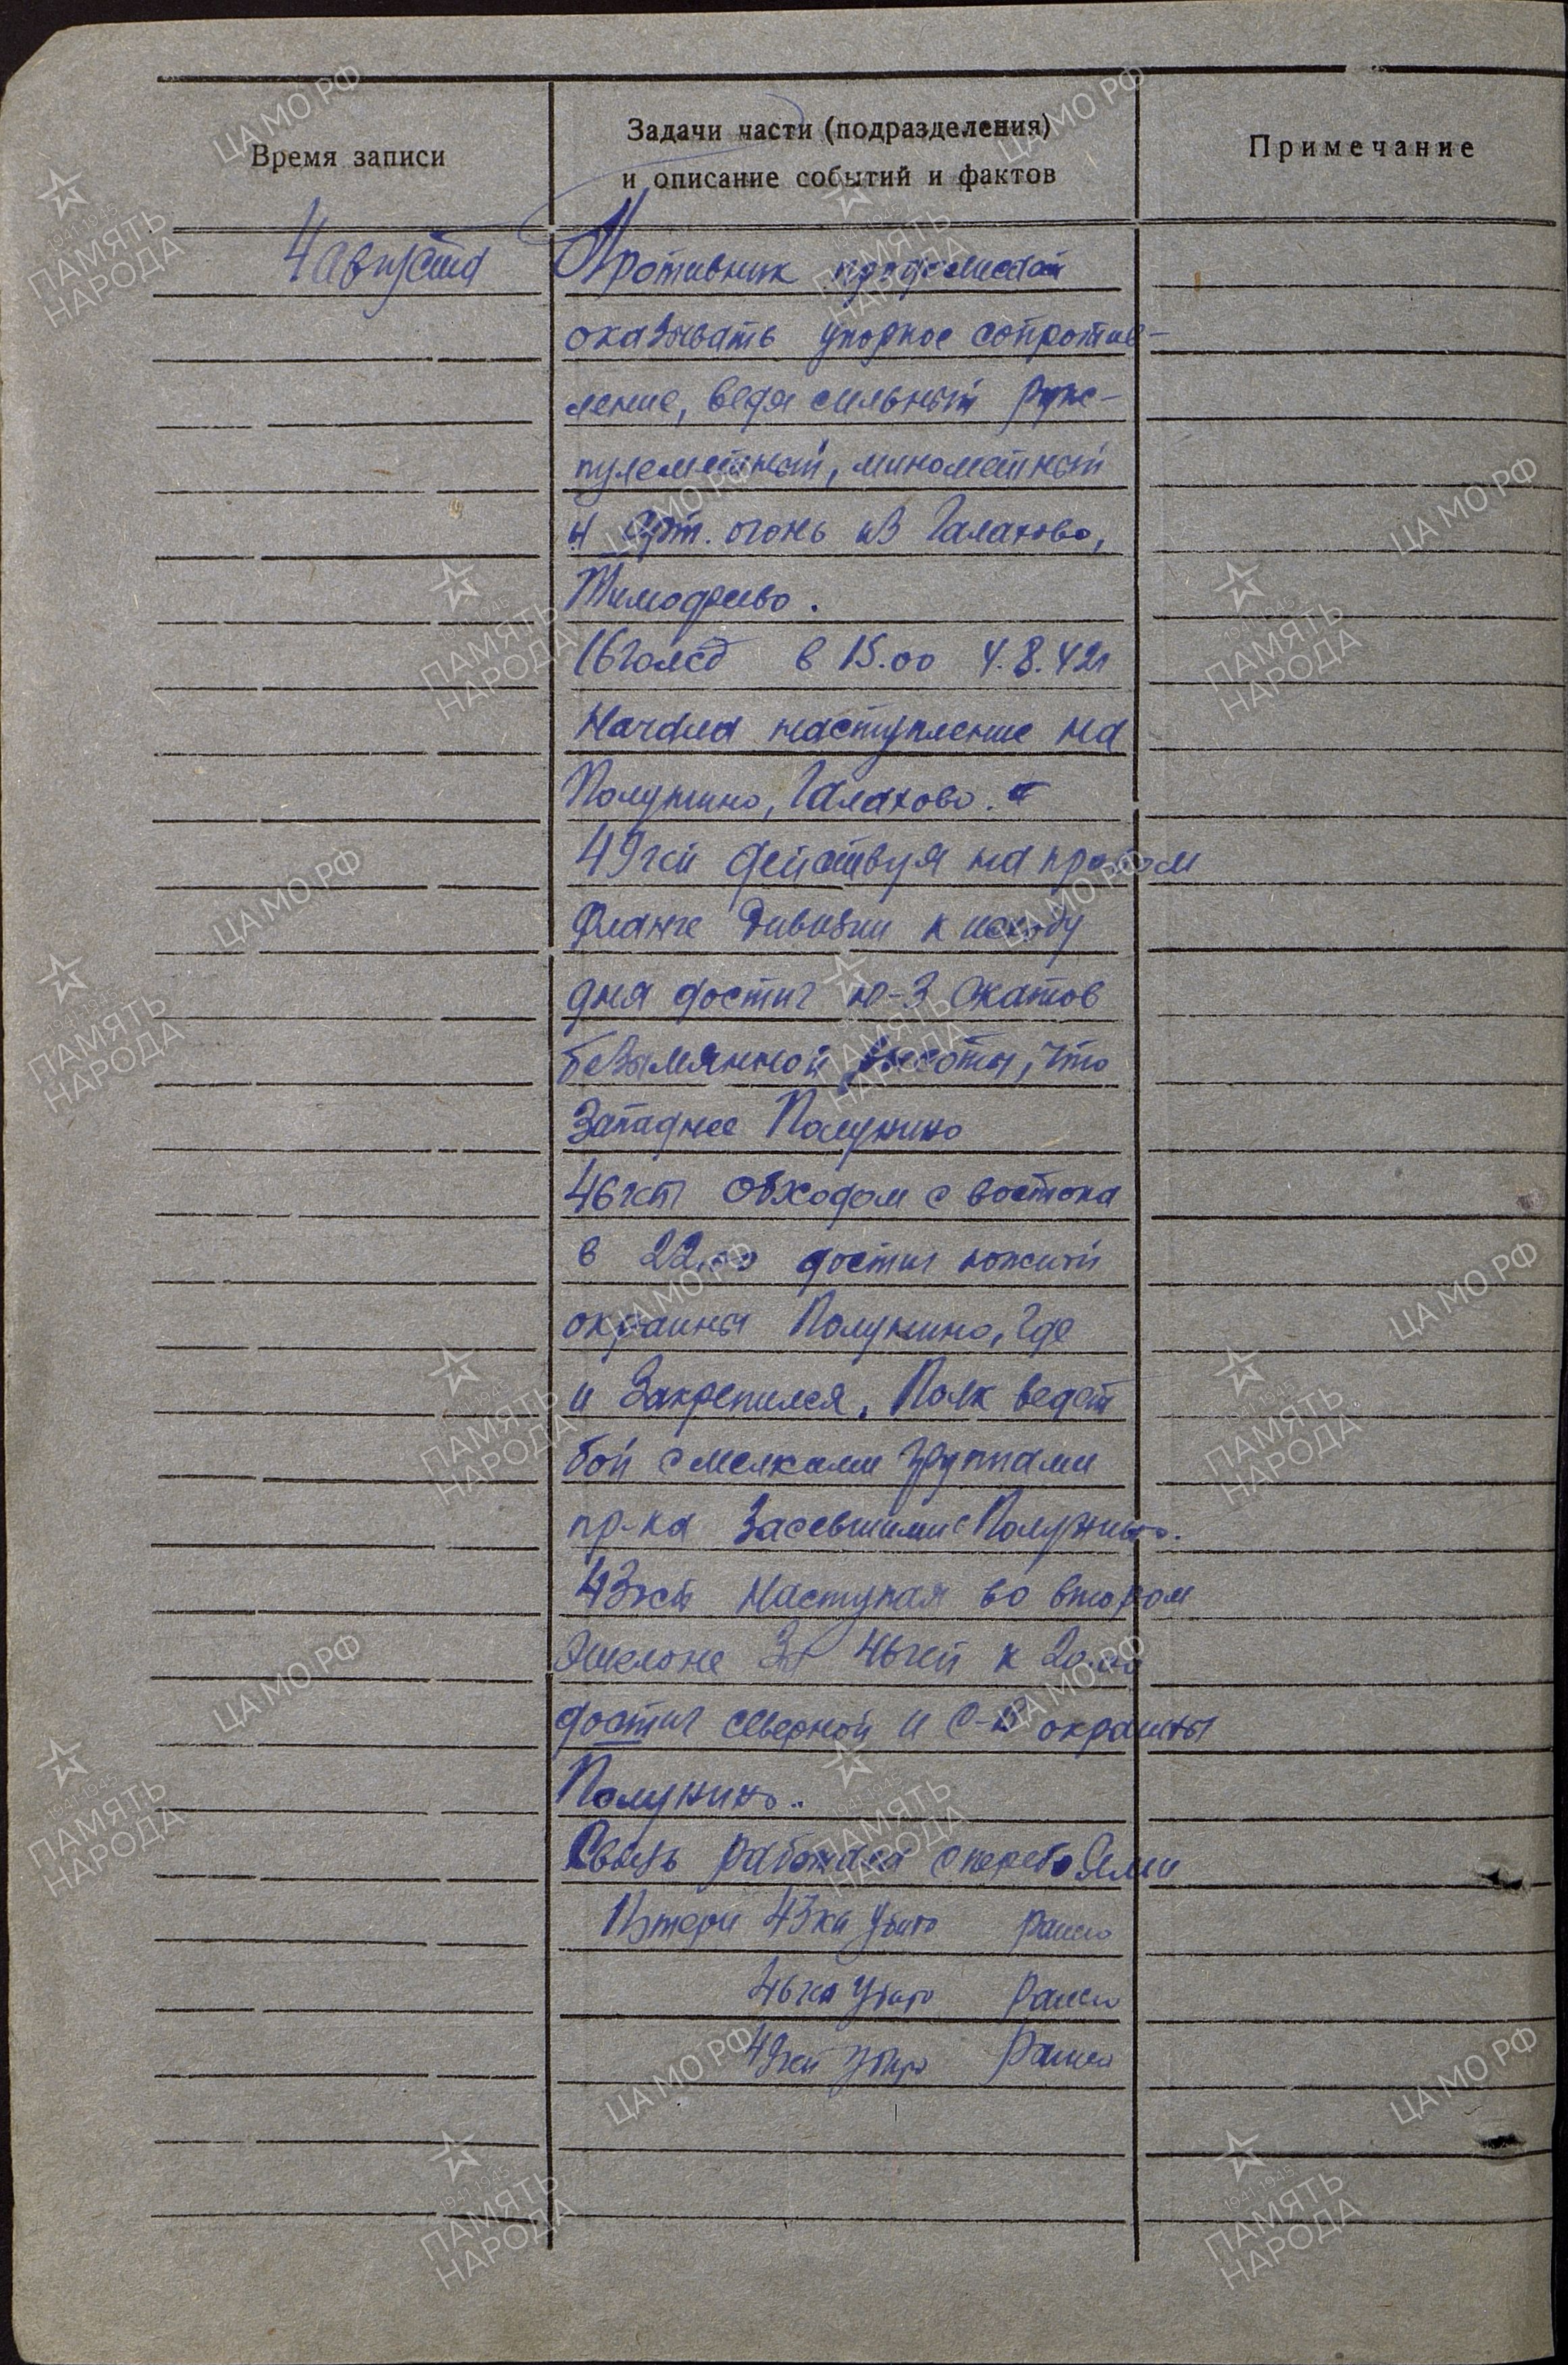 Время записи
Задачи части (подразделения)
и описание событий и фактов
Примечание
4 августа
Противник продолжает
оказывать упорное сопротив-
ление, ведя сильный руж-
пулеметный, минометный
и арт. огонь из Галахово,
Тимофеево.
16гвсд в 15.00 4.8.42г
начала наступление на
Полунино, Галахово.
49гсп действуя на правом
фланге дивизии к исходу
дня достиг ю-з скатов
безымянной высоты, что
западнее Полунино
46гсп обходом с востока
в 22.00 достиг южной
окраины Полунино, где
и закрепился. Полк ведет
бой с мелкими группами
пр-ка засевшими с Полунино.
43гсп наступая во втором
эшелоне за 46гсп к 20.00
достиг северной и с-в окраины
Полунино.
Связь работала с перебоями
Потери 43гсп убито ранено
46гсп убито ранено
49гсп убито ранено
ЦАМО РФ
1941 1945
ПАМЯТЬ
НАРОДА